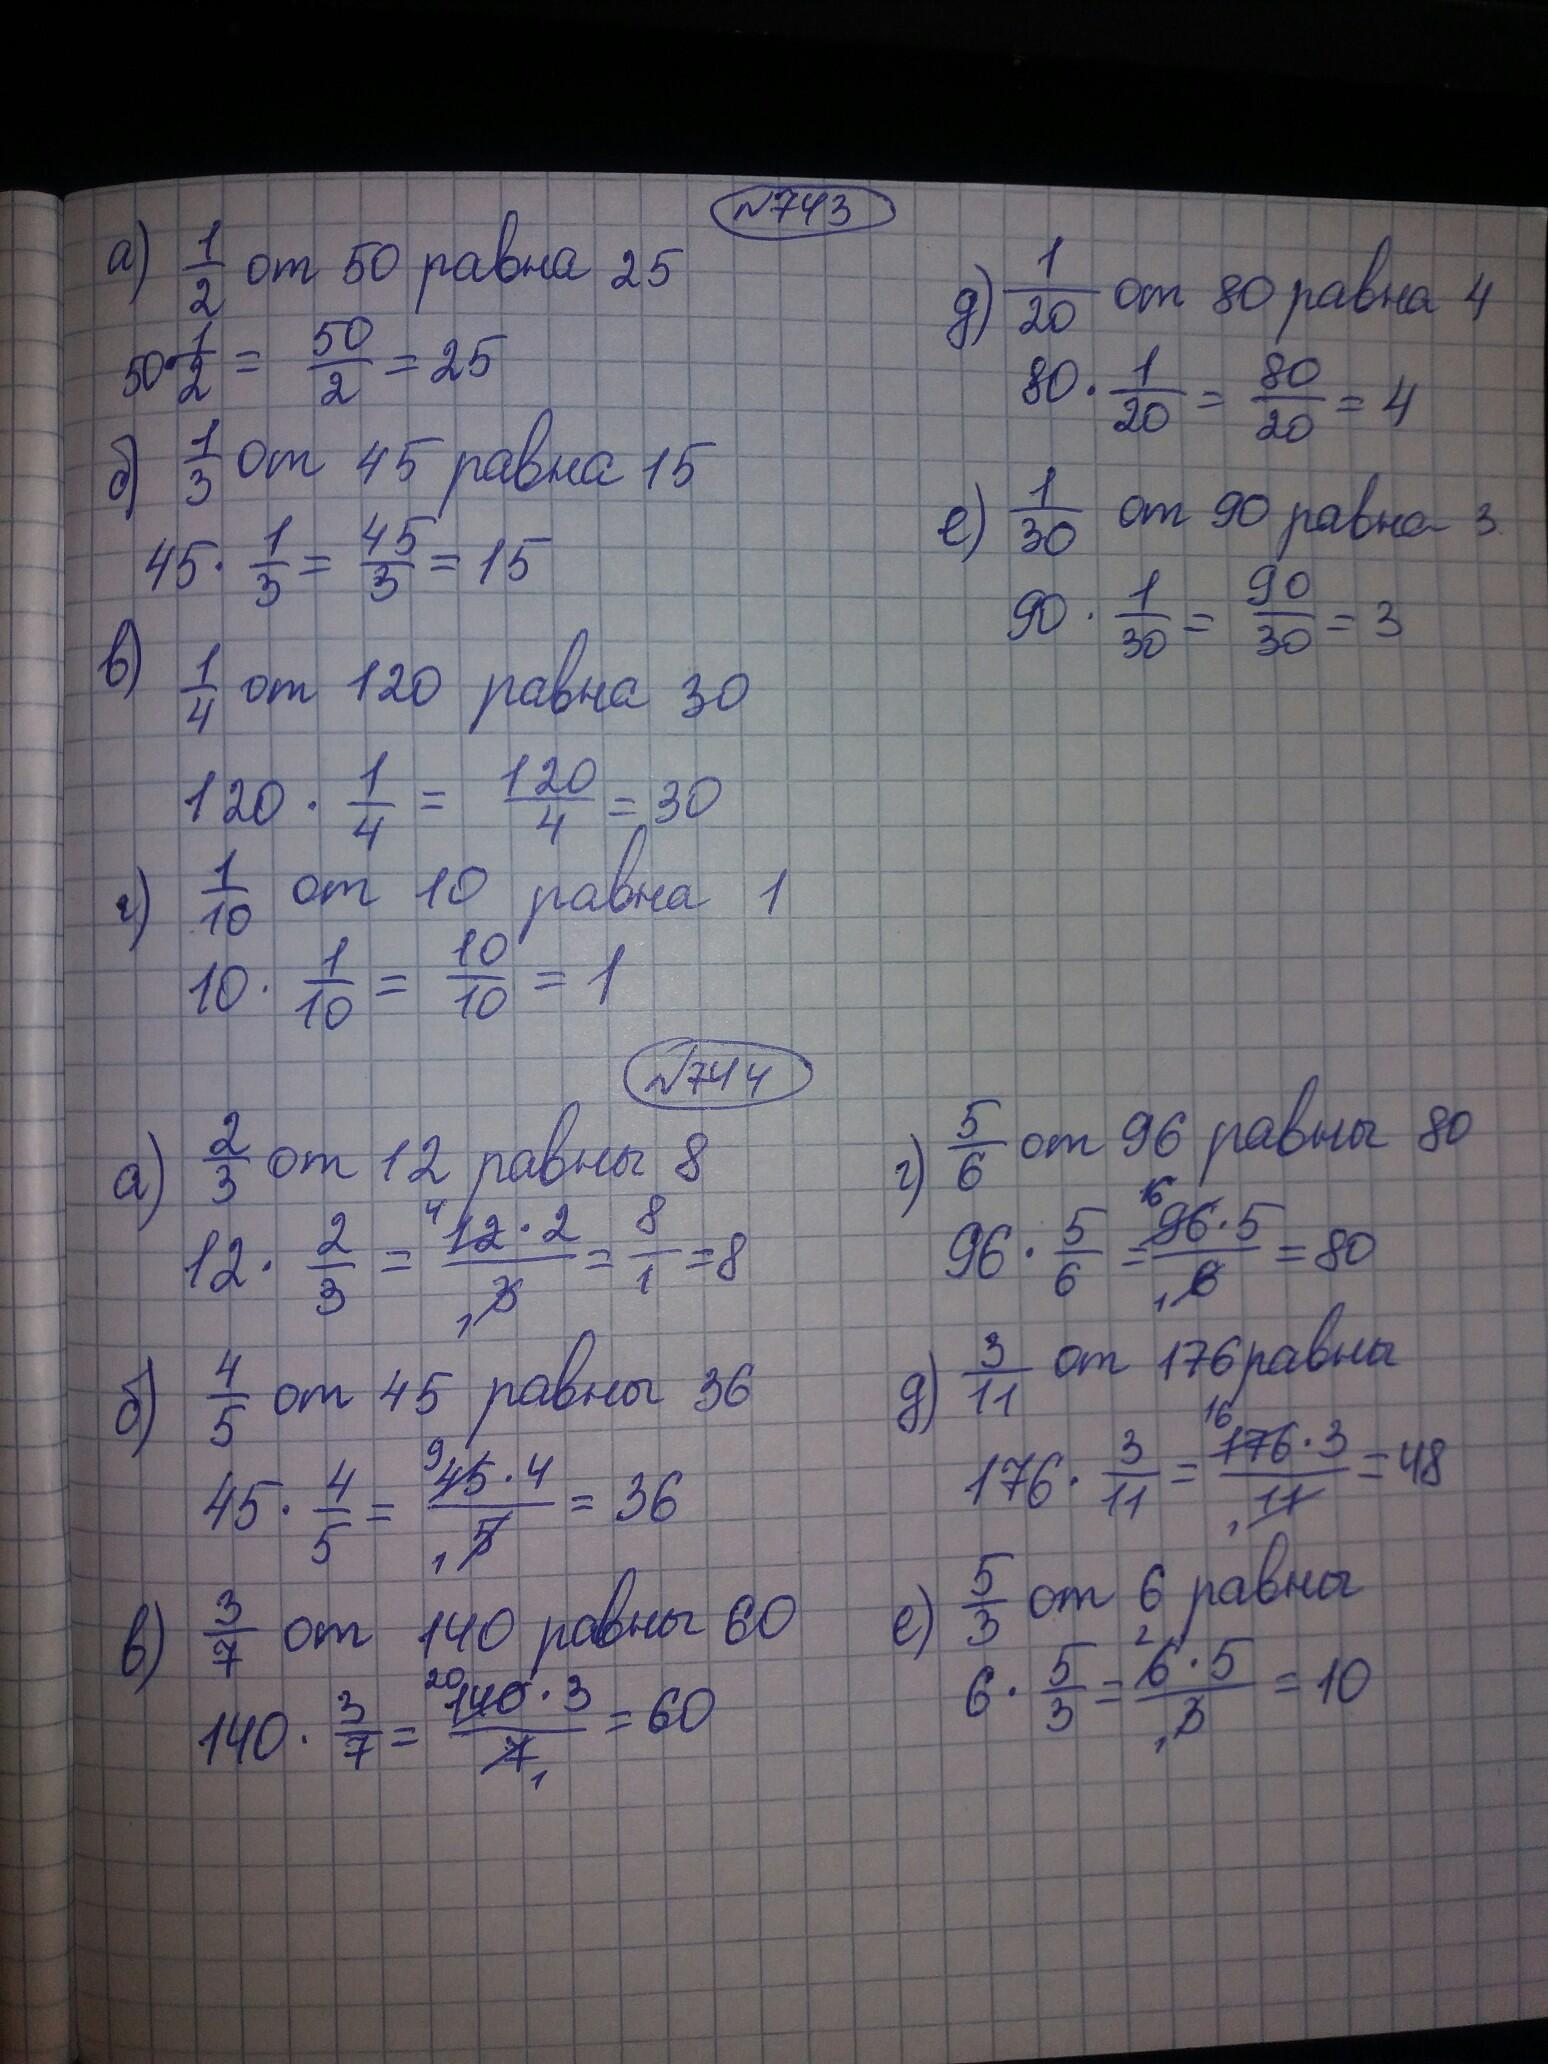 №743
а) 1/2 от 50 равна 25
50·1/2 = 50/2 = 25
б) 1/3 от 45 равна 15
45·1/3 = 45/3 = 15
в) 1/4 от 120 равна 30
120·1/4 = 120/4 = 30
г) 1/10 от 10 равна 1
10·1/10 = 10/10 = 1
д) 1/20 от 80 равна 4
80·1/20 = 80/20 = 4
е) 1/30 от 90 равна 3
90·1/30 = 90/30 = 3
№744
а) 2/3 от 12 равны 8
12·2/3 = 4 12·2/1 3 = 8/1 = 8
б) 4/5 от 45 равны 36
45·4/5 = 9 45·4/1 5 = 36
в) 3/7 от 140 равны 60
140·3/7 = 20 140·3/7 1 = 60
г) 5/6 от 96 равны 80
96·5/6 = 16 96·5/1 6 = 80
д) 3/11 от 176 равны
176·3/11 = 16 176·3/1 11 = 48
е) 5/3 от 6 равны
6·5/3 = 2 6·5/1 3 = 10